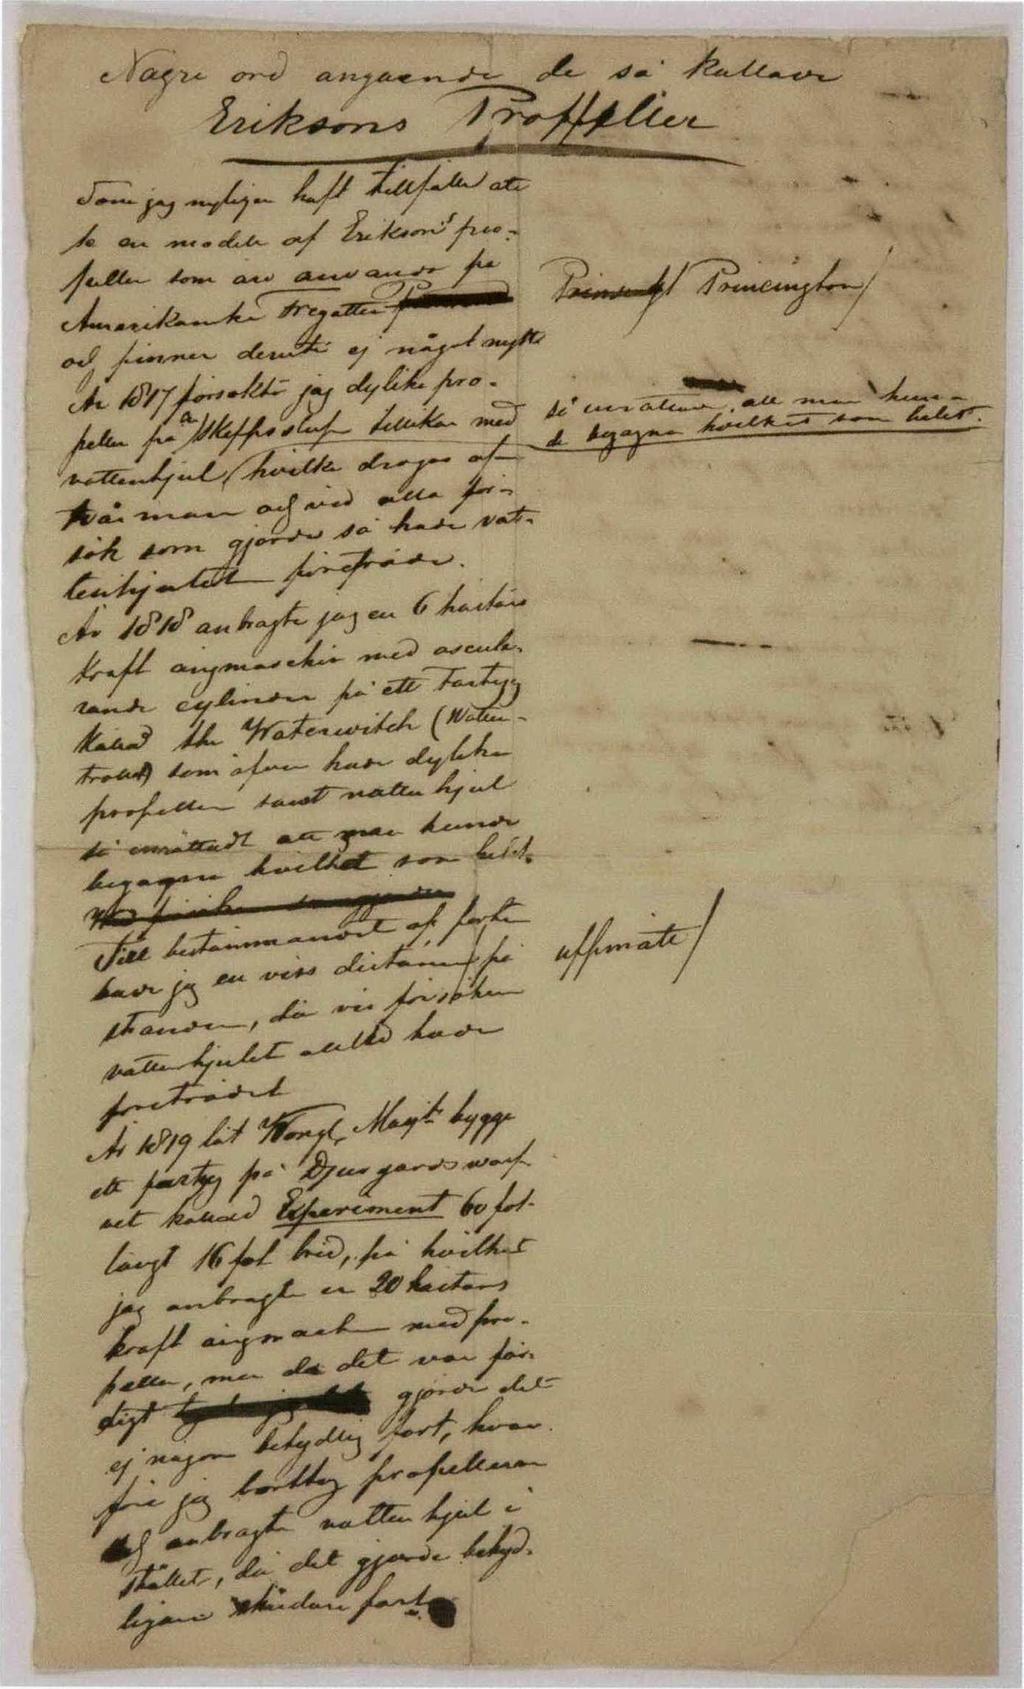 Några ord angaende de så kallade
Eriksons Proppeller
Som jag nyligen haft tillfälle att
se en modell af Eriksons pro-
peller som äro använde på
Amerikanska Fregatten
och finner deruti ej något nytt
År 1817 försökte jag dylika pro-
peller på Skeppsslup tillika med
vattenhjul (hvilka droges af
två man och vid alla för-
sök som gjordes så hade vat-
tenhjulet företräde.
År 1818 anbragte jag en 6 hästars
kraft ångmaschin med oscule-
rande cylinder på ett Fartyg
kallad the Waterwitch (Watten-
trollet) som äfven hade dylika
propeller samt vattenhjul
så inrättadt att man kunde
begagna hvilket som helst.
Till bestämmandet af farten
hade jag en viss distance på
stranden, då vid försöken
vattenhjulet alltid hade
företrädet
År 1819 lät Kongl. Majt bygga
ett fartyg på Djurgårdswarf-
vet kallad Experiment 60 fot
långt 16 fot bred, på hvilket
jag anbragte en 20 hästars
kraft ångmachin med pro-
peller, men då det var fär-
digt gjorde det
ej någon betydlig fart, hvar-
före jag borttog propellerna
och anbragte vattenhjul i
stället, då det gjorde betyd-
ligare fart
Princington
så inrättade, att man kun-
de begagna hvilket som helst.
uppmätt